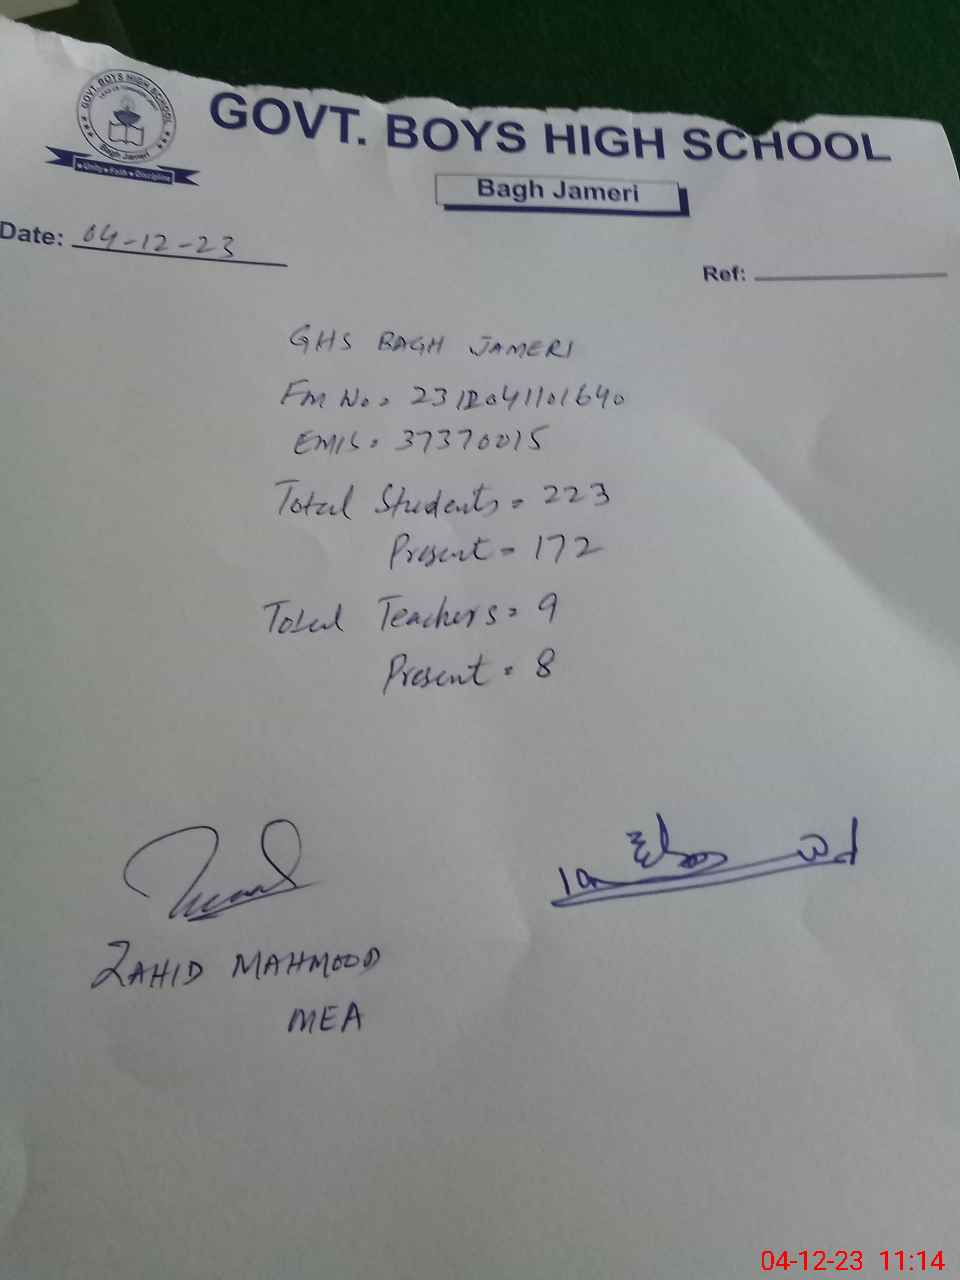 GOVT. BOYS HIGH SCHOOL
Bagh Jameri
GOVT. BOYS HIGH SCHOOL
Bagh Jameri
Unity ★ Faith ★ Discipline
Date: 04-12-23
Ref:
GHS BAGH JAMERI
EMIS = 37370015
Total Students = 223
Present = 172
Total Teachers = 9
Present = 8
ZAHID MAHMOOD
MEA
04-12-23 11:14